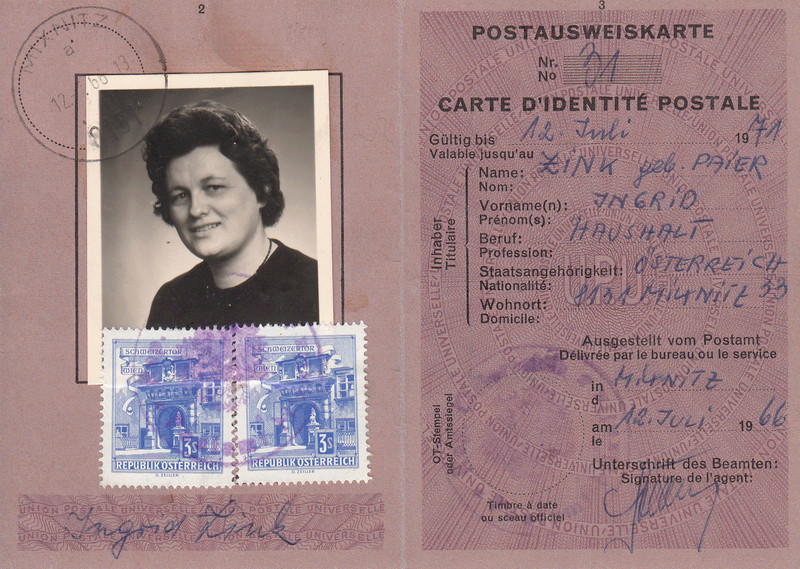 2
MIXNITZ
a
12. 66-13
8131
SCHWEIZERTOR
WIEN
3S
REPUBLIK ÖSTERREICH
G. ZEILLER
SCHWEIZERTOR
WIEN
3S
REPUBLIK ÖSTERREICH
G. ZEILLER
UNION POSTALE UNIVERSELLE
Ingrid Zink
3
POSTAUSWEISKARTE
Nr.
No 31
CARTE D'IDENTITÉ POSTALE
Gültig bis 12. Juli 1971
Valable jusqu'au
Inhaber
Titulaire
Name: ZINK geb. PAIER
Nom:
Vorname(n): INGRID
Prénom(s):
Beruf: HAUSHALT
Profession:
Staatsangehörigkeit: ÖSTERREICH
Nationalité:
Wohnort: 8131 MIXNITZ 33
Domicile:
UPU
Ausgestellt vom Postamt
Délivrée par le bureau ou le service
in MIXNITZ
d
am 12. JULI 1966
le
OT-Stempel
oder Amtssiegel
Unterschrift des Beamten:
Signature de l'agent:
Timbre à date
ou sceau officiel